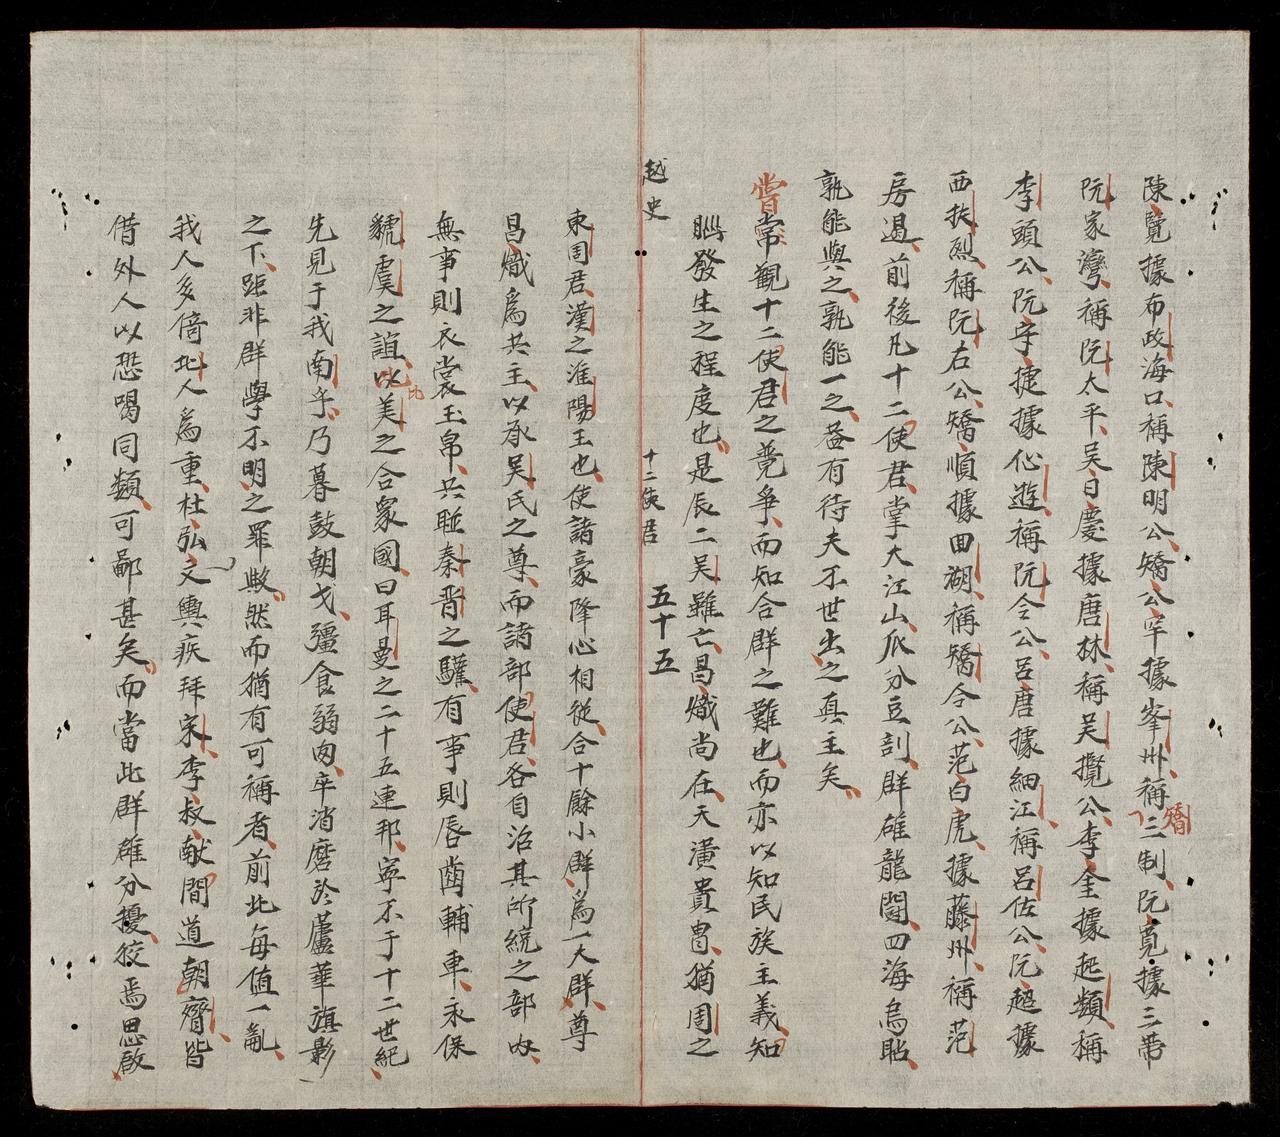 陳覽據布政海口稱陳明公矯公罕據峯州稱矯三制阮寛據三帶
阮家灣稱阮太平吴日慶據唐林稱吴攬公李奎據超類稱
李頭公阮守捷據仙遊稱阮令公吕唐據細江稱吕佐公阮超據
西扶烈稱阮右公矯順據回湖稱矯令公范白虎據藤州稱范
房遏前後凡十二使君掌大江山瓜分豆剖群雄龍闘四海烏貼
孰能與之孰能一之葢有待夫不世出之真主矣
嘗常觀十二使君之競爭而知合群之難也而亦以知民族主義知
腦發生之程度也是辰二吴雖亡昌熾尚在天潢貴胄猶周之
越史
十二使君
五十五
東周君漢之淮陽王也使諸豪降心相從合十餘小群為一大群尊
昌熾爲共主以承吴氏之尊而諸部使君各自治其所統之部内
無事則衣裳玉帛共聯秦晋之驩有事則唇齒輔車永保
虢虞之誼以比美之合衆國日耳曼之二十五連邦寧不于十二世紀
先見于我南乎乃暮鼓朝戈彊食弱肉卒消磨於蘆華旗影
之下距非群學不明之罪歟然而猶有可稱者前此每值一亂
我人多倚北人爲重杜弘文輿疾拜宋李叔献間道朝齊皆
借外人以恐喝同類可鄙甚矣而當此群雄分擾狡焉思啟